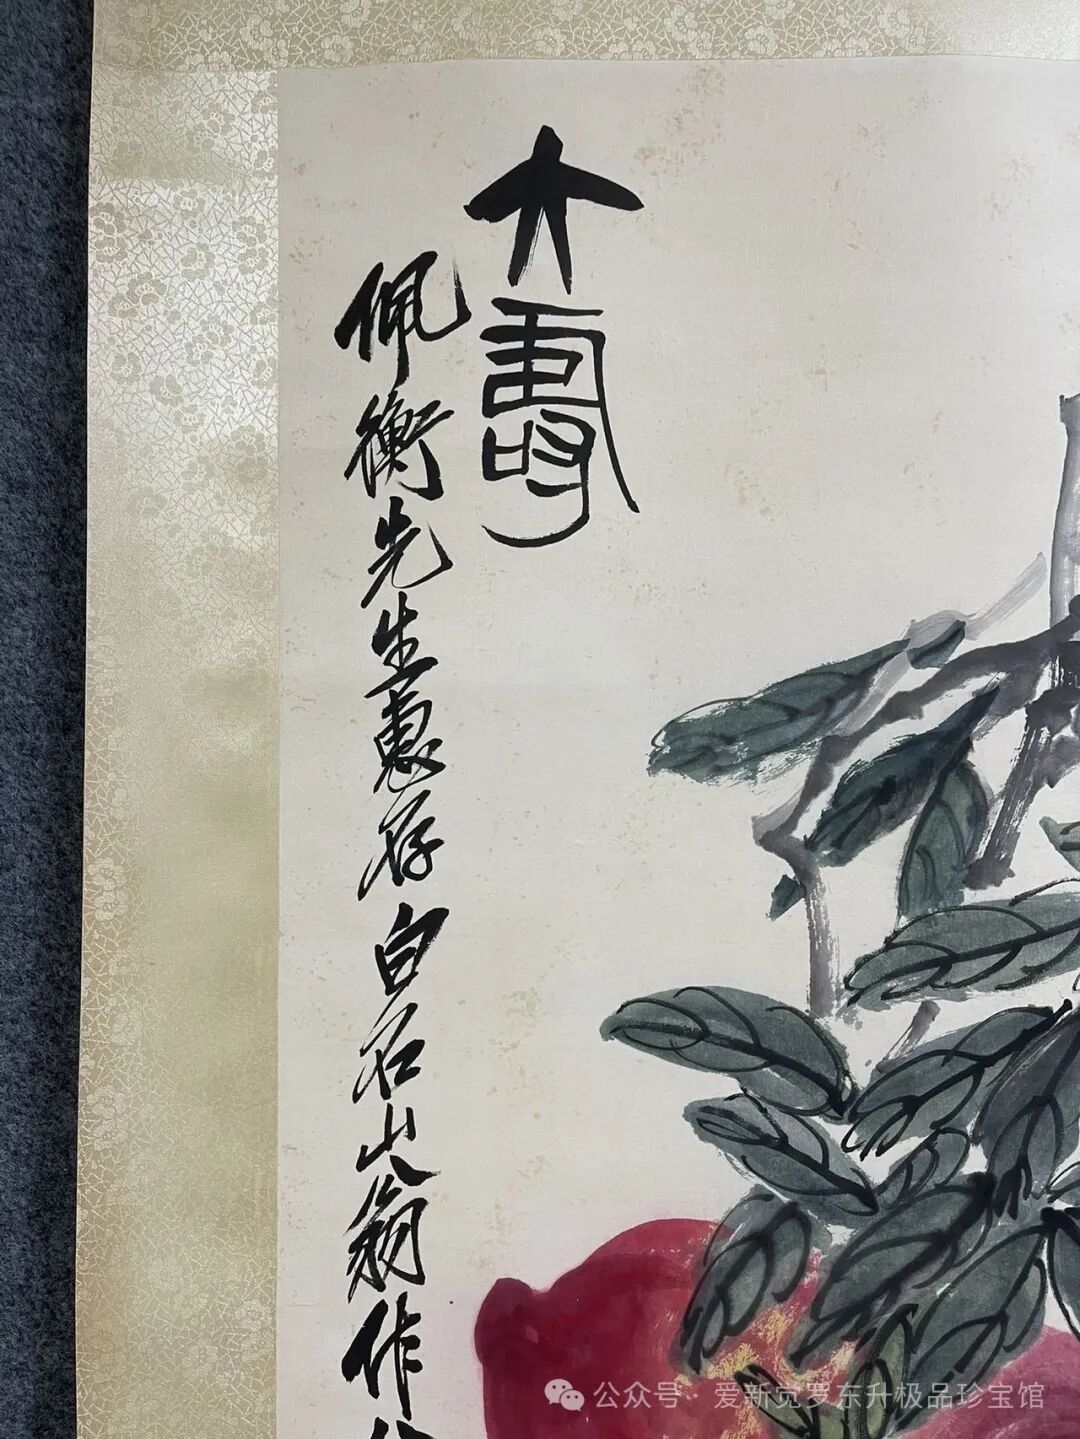 大壽
佩衡先生惠存白石山翁作
公众号 · 爱新觉罗东升极品珍宝馆